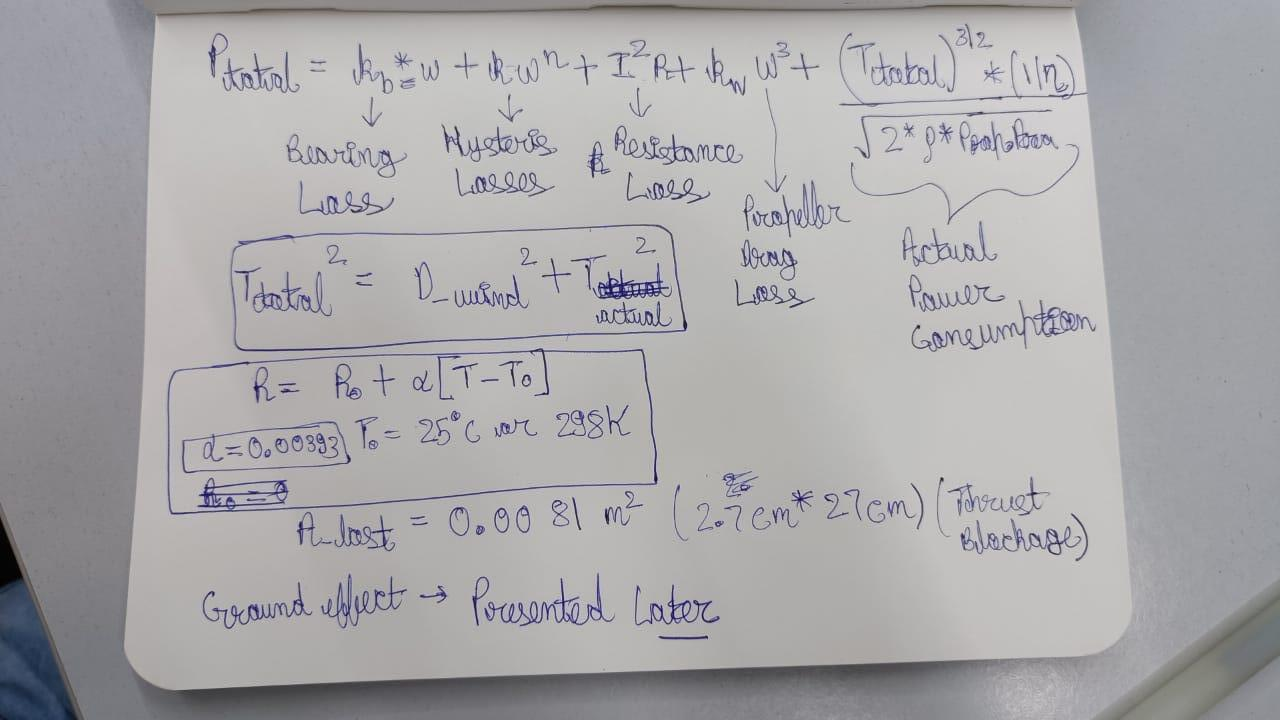 P_total = k_b * w + k w^n + I^2 R + k_w w^3 + (T_total)^{3/2} * (1/η) / √2*ρ*PropArea
Bearing Loss
Hysteris Losses
Resistance Loss
Propeller Drag Loss
Actual Power Consumption
T_total^2 = D_wind^2 + T_actual^2
R = R_0 + α[T - T_0]
α = 0.00393 T_0 = 25°C or 298K
A_lost = 0.0081 m^2 (2.7cm * 27cm) (Thrust Blockage)
Ground effect → Presented Later